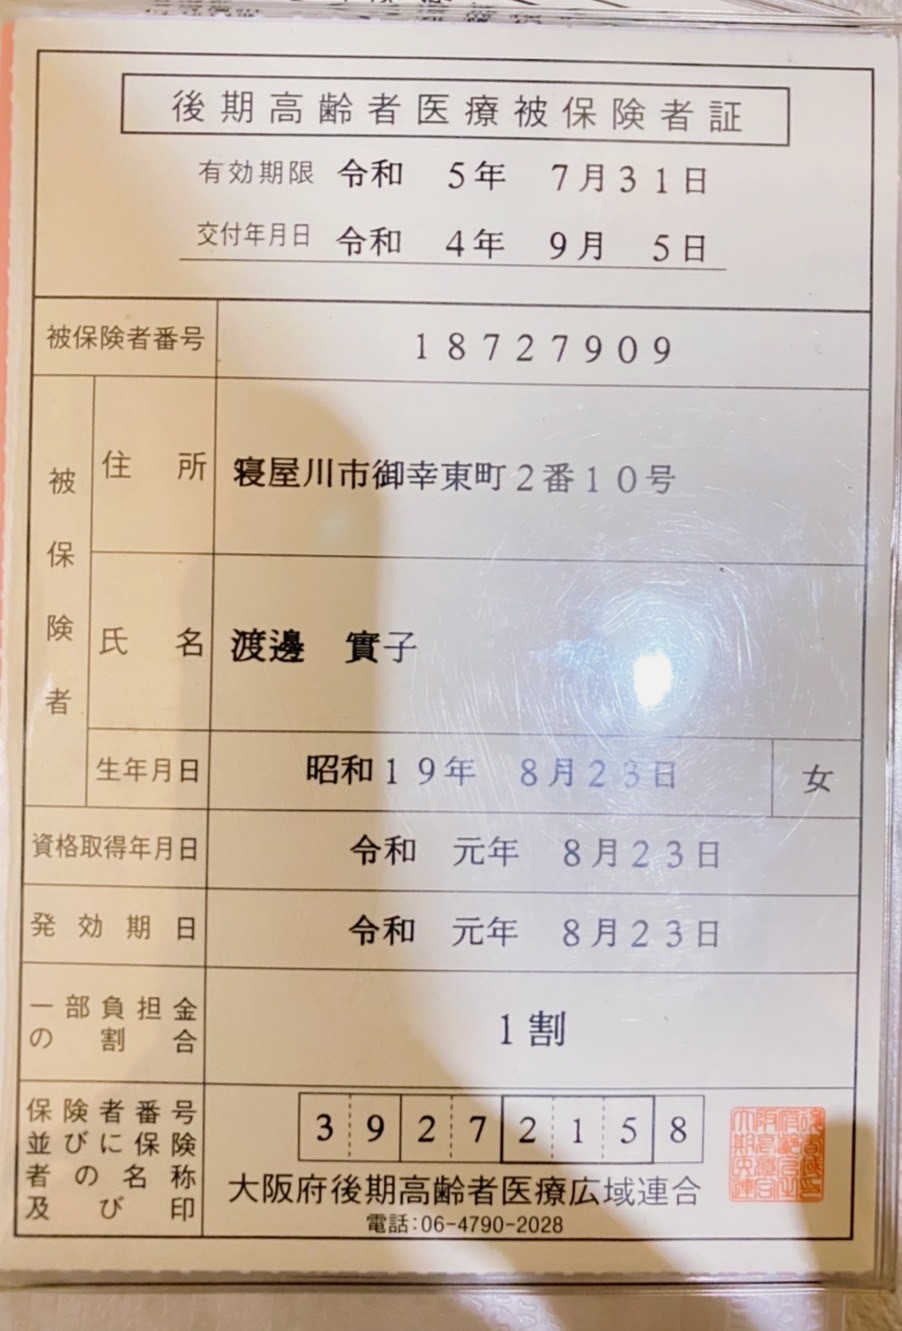 後期高齢者医療被保険者証
有効期限 令和 5年 7月31日
交付年月日 令和 4年 9月 5日
被保険者番号 18727909
被保険者
住所 寝屋川市御幸東町2番10号
氏名 渡邊 實子
生年月日 昭和19年 8月23日 女
資格取得年月日 令和 元年 8月23日
発効期日 令和 元年 8月23日
一部負担金の割合 1割
保険者番号並びに保険者の名称及び印 39272158
大阪府後期高齢者医療広域連合
電話:06-4790-2028